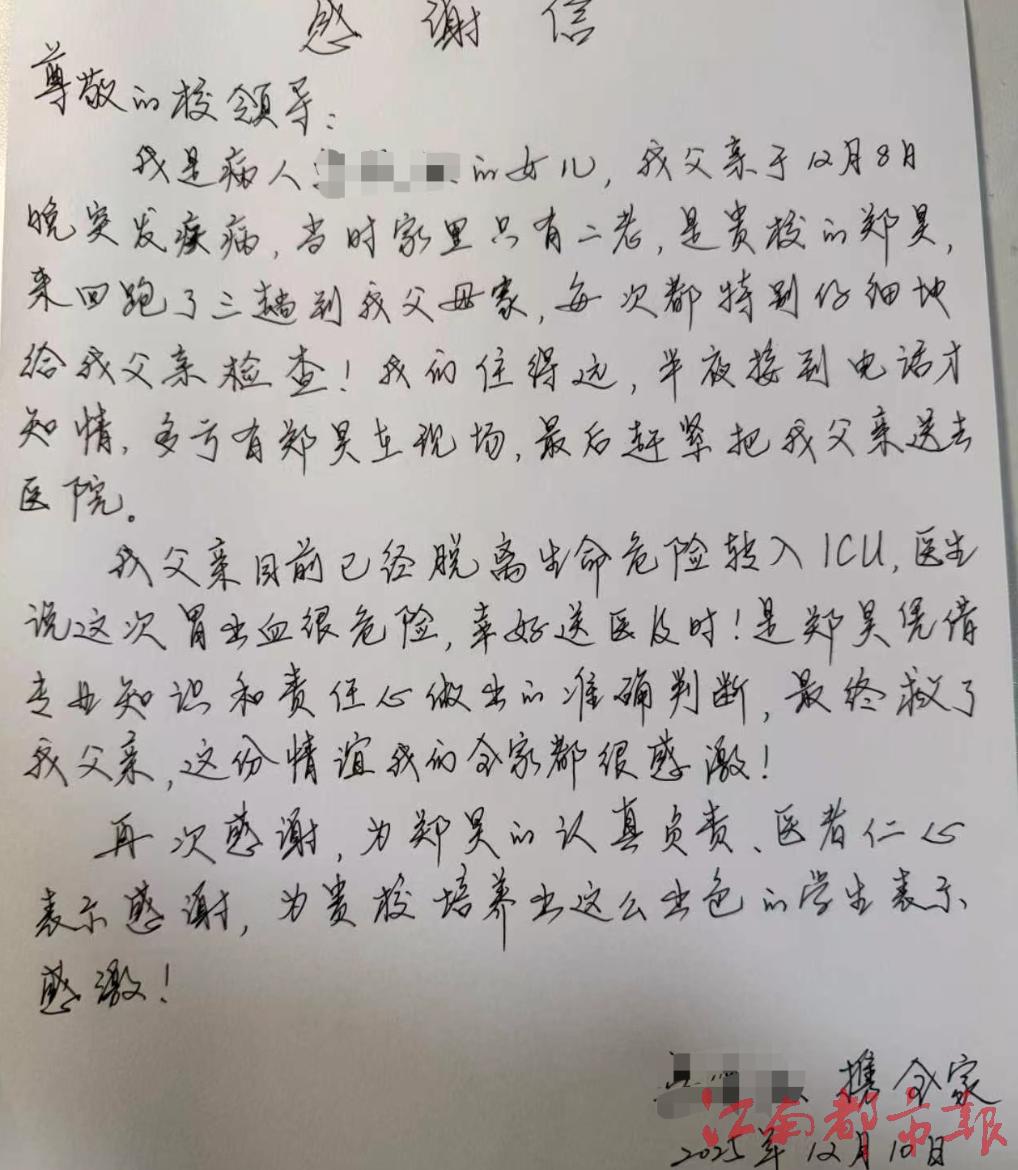 感谢信
尊敬的校领导：
我是病人的女儿，我父亲于12月8日
晚突发疾病，当时家里只有二老，是贵校的郑昊，
来回跑了三趟到我父母家，每次都特别仔细地
给我父亲检查！我们住得远，半夜接到电话才
知情，多亏有郑昊在现场，最后赶紧把我父亲送去
医院。
我父亲目前已经脱离生命危险转入ICU，医生
说这次胃出血很危险，幸好送医及时！是郑昊凭借
专业知识和责任心做出的准确判断，最终救了
我父亲，这份情谊我们全家都很感激！
再次感谢，为郑昊的认真负责、医者仁心
表示感谢，为贵校培养出这么出色的学生表示
感激！
携全家
江南都市報
2025年12月10日